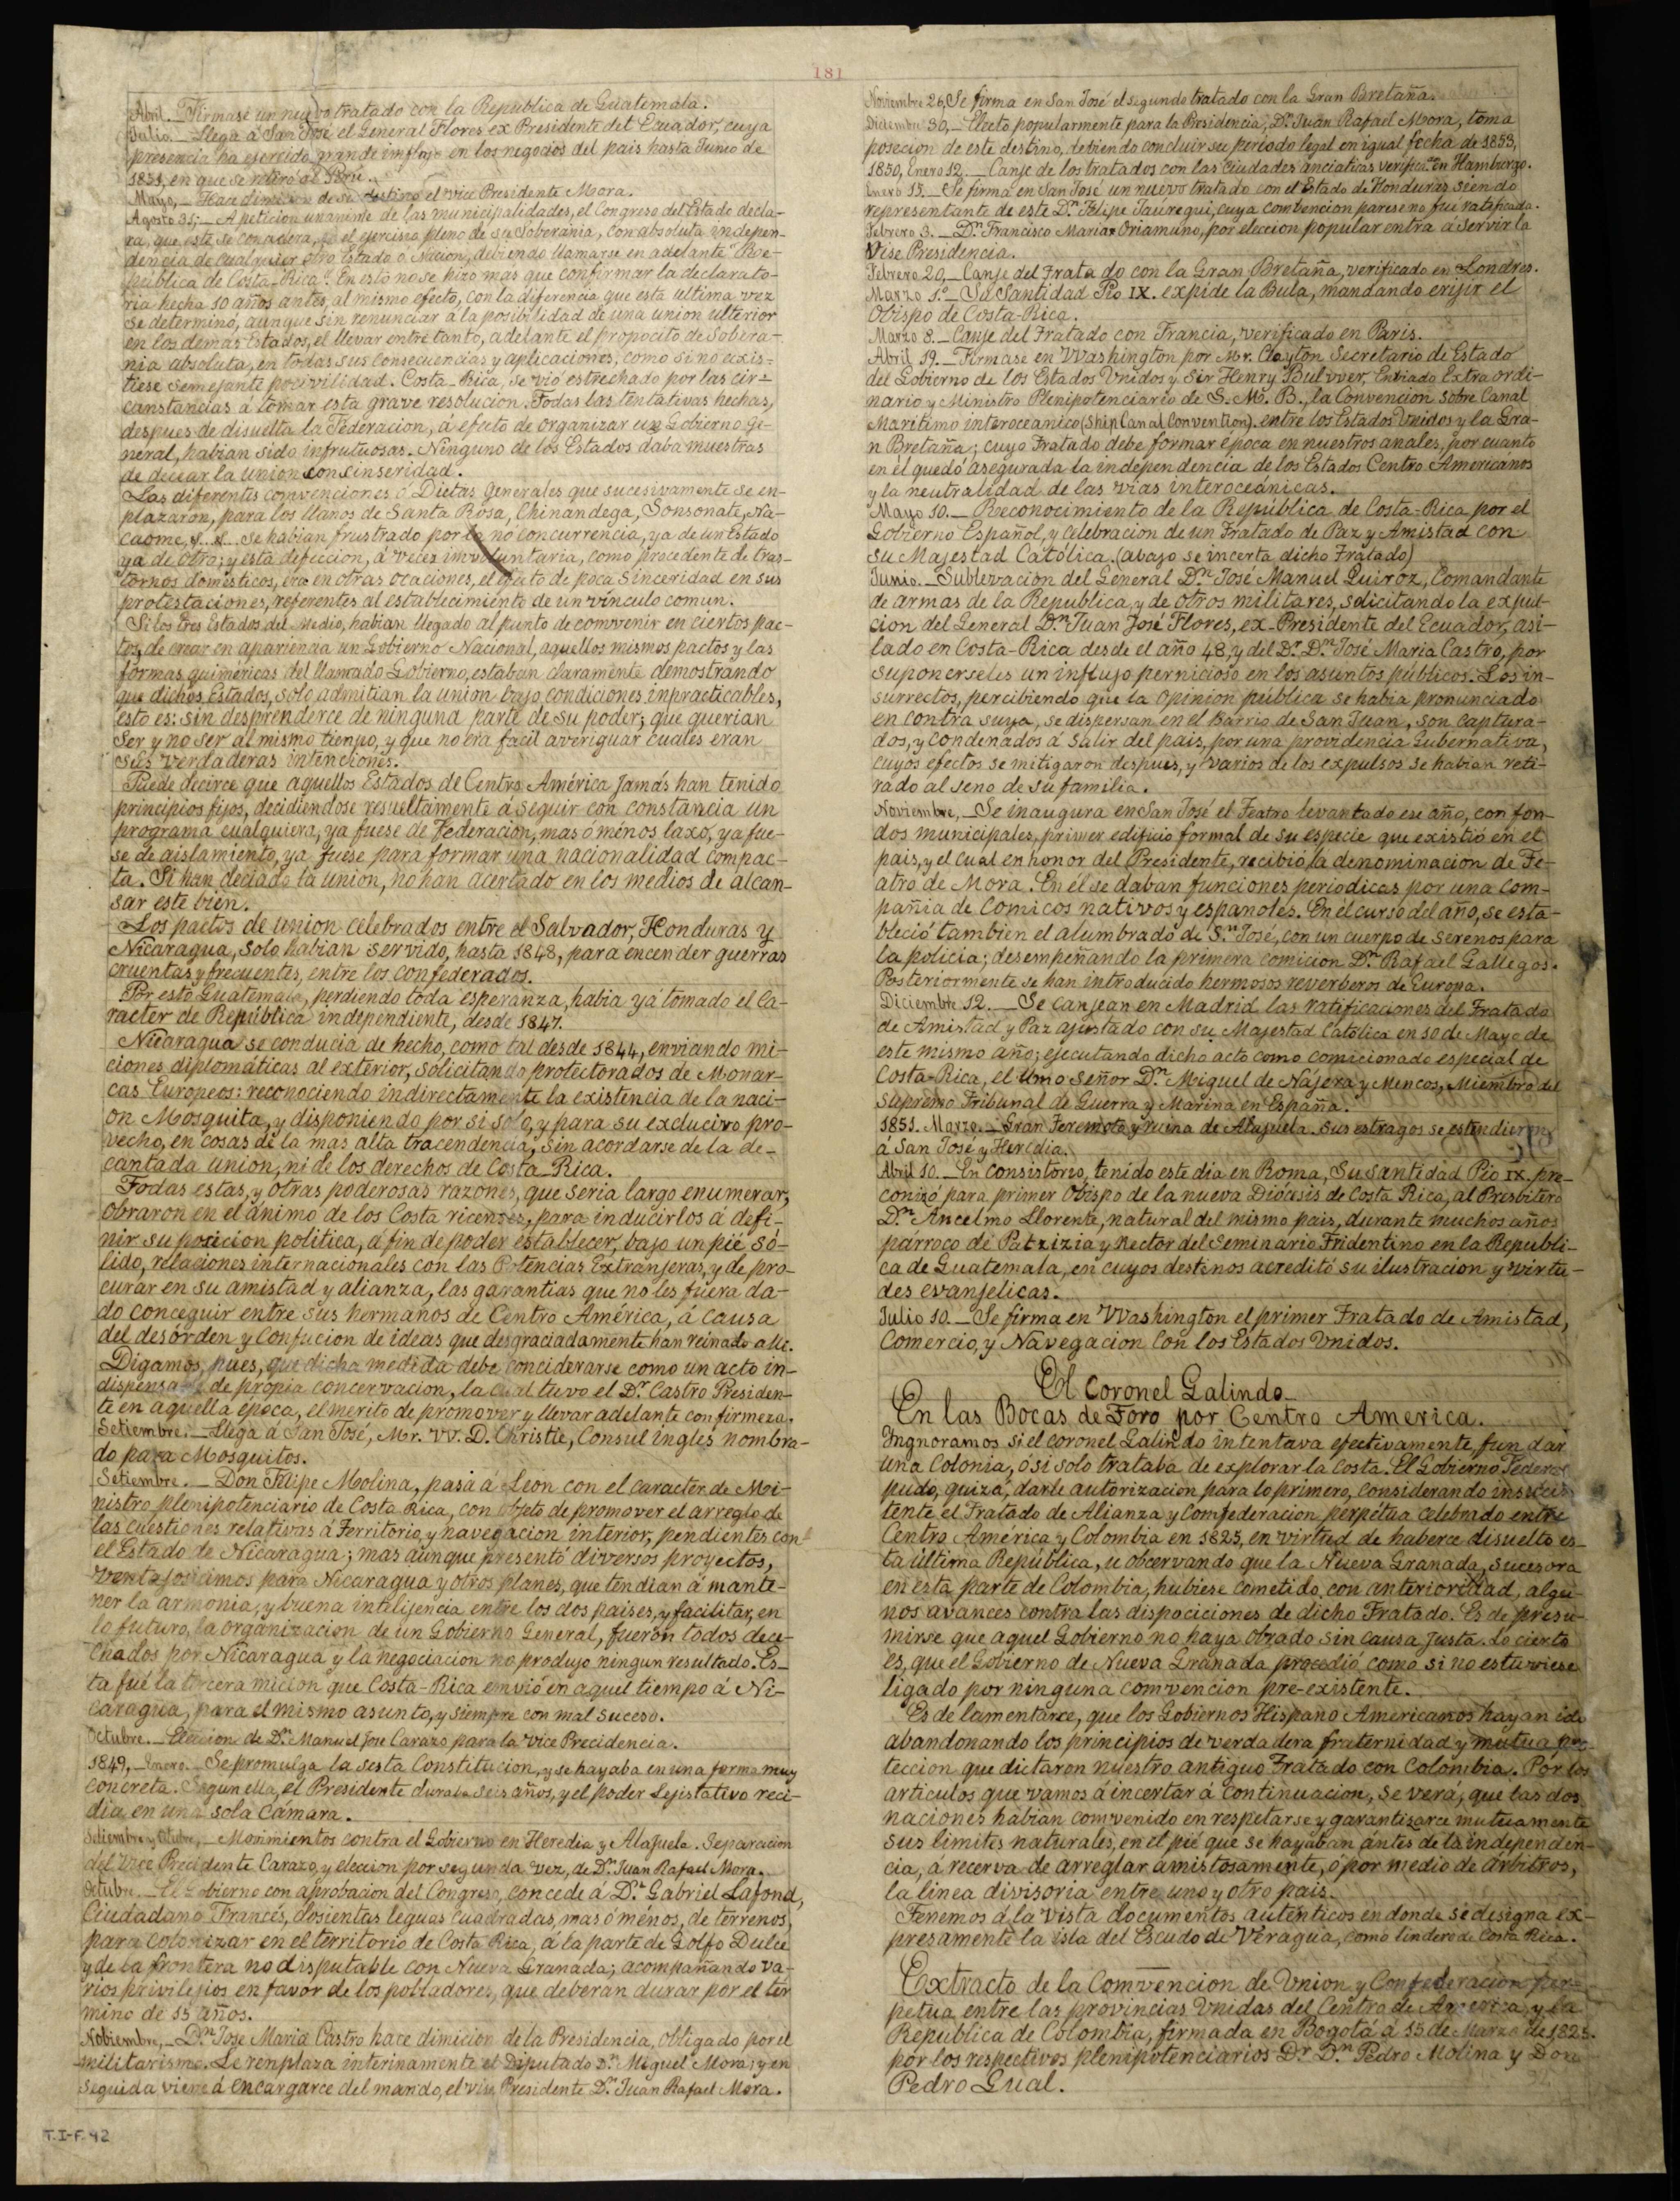 181
Abril._ Firmase un nuevo tratado con la Republica de Guatemala.
Julio._ Llega á San José el General Flores ex Presidente del Ecuador, cuya
presencia ha ejercido grande influjo en los negocios del pais hasta Junio de
1851, en que se retiró al Perú.
Mayo,_ Hace dimicion de su destino el vice Presidente Mora.
Agosto 31;_ A peticion unanime de las municipalidades, el Congreso del Estado decla-
ra, que este se conadera, en el ejercisio pleno de su Soberania, con absoluta indepen-
dencia de cualquier otro Estado o Nacion, debiendo llamarse en adelante "Re-
pública de Costa-Rica". En esto no se hizo mas que confirmar la declarato-
ria hecha 10 años antes, al mismo efecto, con la diferencia que esta ultima vez
se determinó, aunque sin renunciar a la posibilidad de una union ulterior
en los demas Estados, el llevar entre tanto, adelante el proposito de Sobera-
nia absoluta, en todas sus consecuencias y aplicaciones, como si no exis-
tiese semejante pocivilidad. Costa-Rica, se vió estrechado por las cir-
canstancias á tomar esta grave resolucion. Todas las tentativas hechas,
despues de disuelta la Federacion, á efecto de organizar un Gobierno Ge-
neral, habian sido infrutuosas. Ninguno de los Estados daba muestras
de decear la union con sinseridad.
Las diferentes convenciones ó Dietas Generales que sucesivamente se en-
plazaron, para los llanos de Santa Rosa, Chinandega, Sonsonate, Na-
caome, &. &. Se habian frustrado por la no concurrencia, ya de un Estado
ya de otro; y esta defeccion, á veces involuntaria, como procedente de tras-
tornos domisticos, era en otras ocaciones, el efecto de poca sinceridad en sus
protestaciones, referentes al establecimiento de un vínculo comun.
Si los tres Estados del Medio, habian llegado al punto de comvenir en ciertos pac-
tos, de crear en apariencia un Gobierno Nacional, aquellos mismos pactos y las
formas quimericas del llamado Gobierno, estaban claramente demostrando
que dichos Estados, solo admitian la union bajo condiciones inpracticables,
esto es: sin desprenderce de ninguna parte de su poder; que querian
Ser y no ser al mismo tienpo, y que no era facil averiguar cuales eran
sus verdaderas intenciones.
Puede decirce que aquellos Estados de Centro América Jamás han tenido
principios fijos, decidiendose resueltamente á seguir con constancia un
programa cualquiera, ya fuese de Federacion, mas ó ménos laxo, ya fue-
se de aislamiento, ya fuese para formar una nacionalidad compac-
ta. Si han deciado la union, no han acertado en los medios de alcan-
sar este bien.
Los pactos de union celebrados entre el Salvador, Honduras y
Nicaragua, solo habian servido, hasta 1848, para encender guerras
cruentas y frecuentes, entre los confederados.
Por esto Guatemala, perdiendo toda esperanza, habia ya tomado el ca-
racter de República independiente, desde 1847.
Nicaragua se conducia de hecho, como tal desde 1844, enviando mi-
ciones diplomáticas al exterior, solicitando protectorados de Monar-
cas Europeos: reconociendo indirectamente la existencia de la naci-
on Mosquita, y disponiendo por si solo, y para su exclucivo pro-
vecho, en cosas de la mas alta tracendencia, sin acordarse de la de-
cantada union, ni de los derechos de Costa-Rica.
Todas estas, y otras poderosas razones, que seria largo enumerar,
obraron en el ánimo de los Costa ricenses, para inducirlos á defi-
nir su posicion politica, á fin de poder establecer, bajo un pié só-
lido, relaciones internacionales con las Potencias Extranjeras, y de pro-
curar en su amistad y alianza, las garantias que no les fuera da-
do conceguir entre sus hermanos de Centro América, á causa
del desórden y Confucion de ideas que desgraciadamente han reinado alli.
Digamos, pues, que dicha medida debe conciderarse como un acto in-
dispensable de propia concervacion, la cual tuvo el Dr. Castro Presiden-
te en aquella época, el merito de promover y llevar adelante con firmeza.
Setiembre._ Llega á San José, Mr. W. D. Christie, Consul ingles nombra-
do para Mosquitos.
Setiembre._ Don Felipe Molina, pasa á Leon con el caracter de Mi-
nistro plenipotenciario de Costa Rica, con objeto de promover el arreglo de
las cuestiones relativas á Territorio, y navegacion interior, pendientes con
el Estado de Nicaragua; mas aunque presentó diversos proyectos,
ventajocicimos para Nicaragua y otros planes, que tendian á mante-
ner la armonia, y buena inteligencia entre los dos paises, y facilitar, en
lo futuro, la organizacion de un Gobierno General, fueron todos dece-
chados por Nicaragua y la negociacion no produjo ningun resultado. Es-
ta fué la tercera micion que Costa-Rica envió en aquel tiempo á Ni-
caragua, para el mismo asunto, y siempre con mal suceso.
Octubre._ Eleccion de Dn. Manuel Jose Carazo para la Vice Precidencia.
1849,_ Enero._ Se promulga la sesta Constitucion, y se hayaba en una forma muy
concreta. Segun ella, el Presidente duraba seis años, y el poder Lejislativo reci-
dia en una sola cámara.
Setiembre y Octubre,_ Movimientos contra el Gobierno en Heredia y Alajuela. Separacion
del Vice Precidente Carazo, y eleccion por segunda vez, de Dn. Juan Rafael Mora.
Octubre._ El Gobierno con aprobacion del Congreso, concede á Dn. Gabriel Lafond,
Ciudadano Francés, dosientas leguas cuadradas, mas ó ménos, de terrenos,
para colonizar en el territorio de Costa Rica, á la parte de Golfo Dulce
y de la frontera no disputable con Nueva Granada; acompañando va-
rios privilejios en favor de los pobladores, que deberan durar por el tér
mino de 15 años.
Nobiembre,_ Dn. Jose Maria Castro hace dimicion de la Presidencia, obligado por el
militarismo. Le renplaza interinamente el Diputado Dn. Miguel Mora; y en
seguida viene á encargarce del mando, el vise Presidente Dn. Juan Rafael Mora.
Noviembre 26, Se firma en San José el segundo tratado con la Gran Bretaña.
Diciembre 30,_ Electo popularmente para la Presidencia, Dn. Juan Rafael Mora, toma
posecion de este destino, debiendo concluir su periodo legal en igual fecha de 1853,
1850, Enero 12._ Canje de los tratados con las Ciudades Anciaticas verifico. en Hamburgo.
Enero 15._ Se firma en San José un nuevo tratado con el Estado de Honduras siendo
representante de este Dn. Felipe Jáuregui, cuya combencion parese no fue ratificada.
Febrero 3._ Dn. Francisco Maria Oriamuno, por eleccion popular entra á servir la
Vise Presidencia.
Febrero 20,_ Canje del Tratado con la Gran Bretaña, verificado en Londres.
Marzo 1º_ Su Santidad Pio IX. expide la Bula, mandando erijir el
Obispo de Costa-Rica.
Marzo 8._ Canje del Tratado con Francia, verificado en Paris.
Abril 19._ Firmase en Washington por Mr. Clayton Secretario de Estado
del Gobierno de los Estados Unidos y Sir Henry Bulwer, Enbiado Extraordi-
nario y Ministro Plenipotenciario de S. M. B., la Convencion sobre Canal
Maritimo interoceanico (Ship Canal Convention). entre los Estados Unidos y la Gra-
n Bretaña; cuyo Tratado debe formar época en nuestros anales, por cuanto
en él quedó asegurada la independencia de los Estados Centro Americanos
y la neutralidad de las vias interoceánicas.
Mayo 10._ Reconocimiento de la República de Costa-Rica por el
Gobierno Español, y celebracion de un Tratado de Paz y Amistad con
su Majestad Católica. (abajo se incerta dicho Tratado)
Junio._ Sublevacion del General Dn. José Manuel Quiroz, Comandante
de armas de la Republica, y de otros militares, solicitando la expul-
cion del General Dn. Juan José Flores, ex-Presidente del Ecuador, asi-
lado en Costa-Rica desde el año 48, y del Dr. Dn. José Maria Castro, por
suponerseles un influjo pernicioso en los asuntos públicos. Los in-
surrectos, percibiendo que la opinion publica se habia pronunciado
en contra suya, se dispersan en el Barrio de San Juan, son captura-
dos, y condenados á salir del pais, por una providencia Gubernativa,
cuyos efectos se mitigaron despues, y varios de los expulsos se habian reti-
rado al seno de su familia.
Noviembre,_ Se inaugura en San José el Teatro levantado ese año, con fon-
dos municipales, primer edificio formal de su especie que existió en el
pais, y el cual en honor del Presidente, recibió la denominacion de Te-
atro de Mora. En él se daban funciones periodicas por una com-
pañia de comicos nativos y españoles. En el curso del año, se esta-
bleció tambien el alumbrado de Sn. José, con un cuerpo de serenos para
la policia; desempeñando la primera comicion Dn. Rafael Gallegos.
Posteriormente se han introducido hermosos reverberos de Europa.
Diciembre 12._ Se canjean en Madrid las ratificaciones del Tratado
de Amistad y Paz ajustado con su Majestad Catolica en 10 de Mayo de
este mismo año; ejecutando dicho acto como comicionado especial de
Costa-Rica, el Ilmo Señor Dn. Miguel de Nájera y Mencos, Miembro del
Supremo Tribunal de Guerra y Marina en España.
1851. Marzo._ Gran Teremoto y ruina de Alajuela. Sus estragos se estendieron
á San José y Heredia.
Abril 10._ En Consistorio, tenido este dia en Roma, Su Santidad Pio IX, pre-
conizó para primer Obispo de la nueva Diócesis de Costa Rica, al Presbitero
Dn. Ancelmo Llorente, natural del mismo pais, durante muchos años
párroco de Patzizia y Rector del Seminario Tridentino en la Republi-
ca de Guatemala, en cuyos destinos acreditó su ilustracion y virtu-
des evanjelicas.
Julio 10._ Se firma en Washington el primer Tratado de Amistad,
Comercio, y Navegacion con los Estados Unidos.
El Coronel Galindo_
En las Bocas de Toro por Centro America.
Yngnoramos si el coronel Galindo intentava efectivamente, fundar
una Colonia, ó si solo trataba de explorar la costa. El Gobierno Federal
pudo, quiza, darle autorizacion para lo primero, considerando insucis-
tente el Tratado de Alianza y Comfederacion perpétua celebrado entre
Centro América y Colombia en 1825, en virtud de haberce disuelto es-
ta última República, u obcervando que la Nueva Granada, sucesora
en esta parte de Colombia, hubiese cometido, con anterioridad, algu-
nos avances contra las dispociciones de dicho Tratado. Es de presu-
mirse que aquel Gobierno no haya obrado sin causa justa. Lo cierto
es, que el Gobierno de Nueva Granada procedió como si no estuviese
ligado por ninguna comvencion pre-existente.
Es de lamentarce, que los Gobiernos Hispano Americanos hayan ido
abandonando los principios de verdadera fraternidad y mutua pro-
teccion que dictaron nuestro antiguo Tratado con Colombia. Por los
articulos que vamos á incertar á continuacion, se verá, que las dos
naciones habian comvenido en respetarse y garantisarce mutuamente
sus limites naturales, en el pié que se hayaban ántes de la independen-
cia, á recerva de arreglar amistosamente, ó por medio de arbitros,
la linea divisoria entre uno y otro pais.
Tenemos á la vista documentos auténticos en donde se designa ex-
presamente la isla del Escudo de Veragua, como lindero de Costa Rica.
Extracto de la Comvencion de Union y Confederacion per-
petua entre las provincias Unidas del Centro de America, y la
Republica de Colombia, firmada en Bogotá á 15 de Marzo de 1825.
por los respectivos plenipotenciarios Dr. Dn. Pedro Molina y Don
Pedro Gual.
T.I-F.42